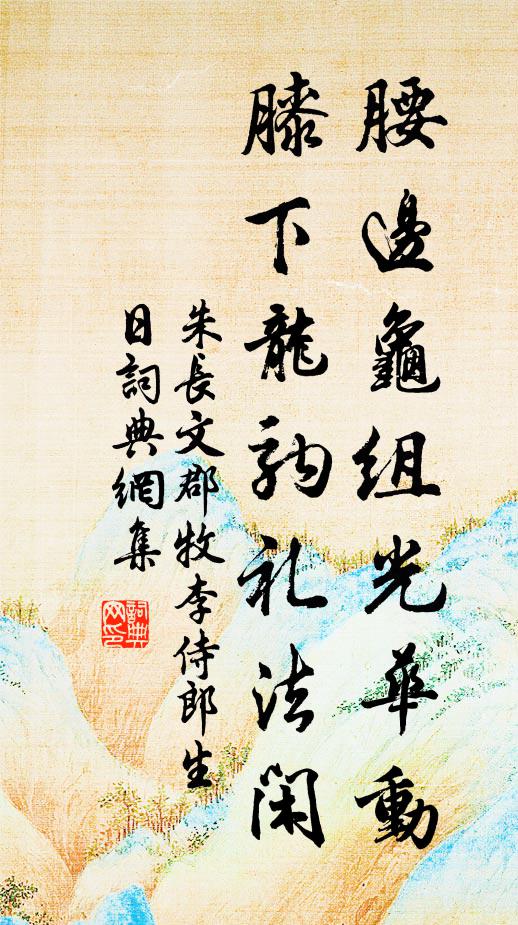 腰邊龜組光華動
膝下龍駒礼法閑
朱長文郡牧李侍郎生
日詞典網集
詞典網印